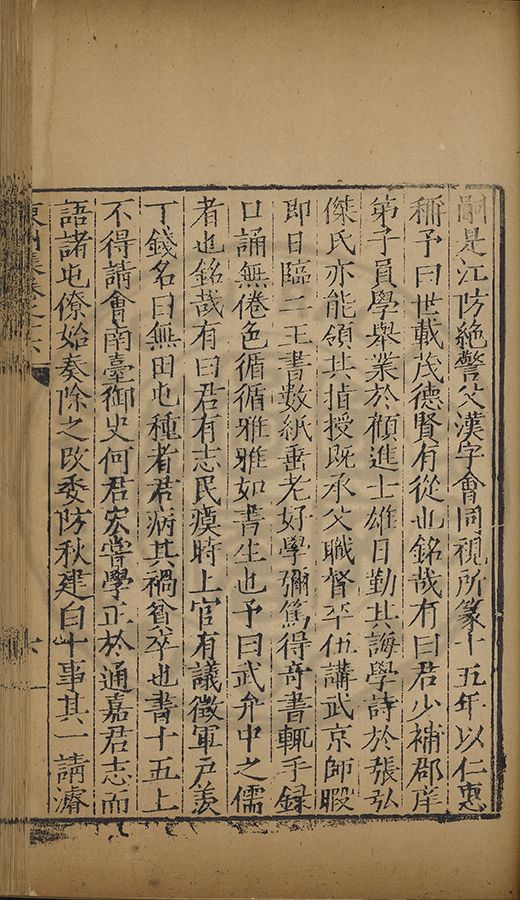 嗣是江防絕警父漢字會同視所篆十五年以仁惠
稱予曰世載茂德賢有從也銘哉有曰君少補郡庠
第子員學舉業於顧進士雄日勤其誨學詩於張弘
傑氏亦能領其指授既承父職督卒伍講武京師暇
即日臨二王書數紙垂老好學彌篤得奇書輒手録
口誦無倦色循循雅雅如書生也予曰武弁中之儒
者也銘哉有曰君有志民瘼時上官有議徵軍戶羨
丁錢名曰無田也種者君病其禍貧卒也書十五上
不得請會南臺御史何君宏嘗學正於通嘉君志而
語諸屯僚始奏除之改委防秋建白十事其一請濬
集卷之六